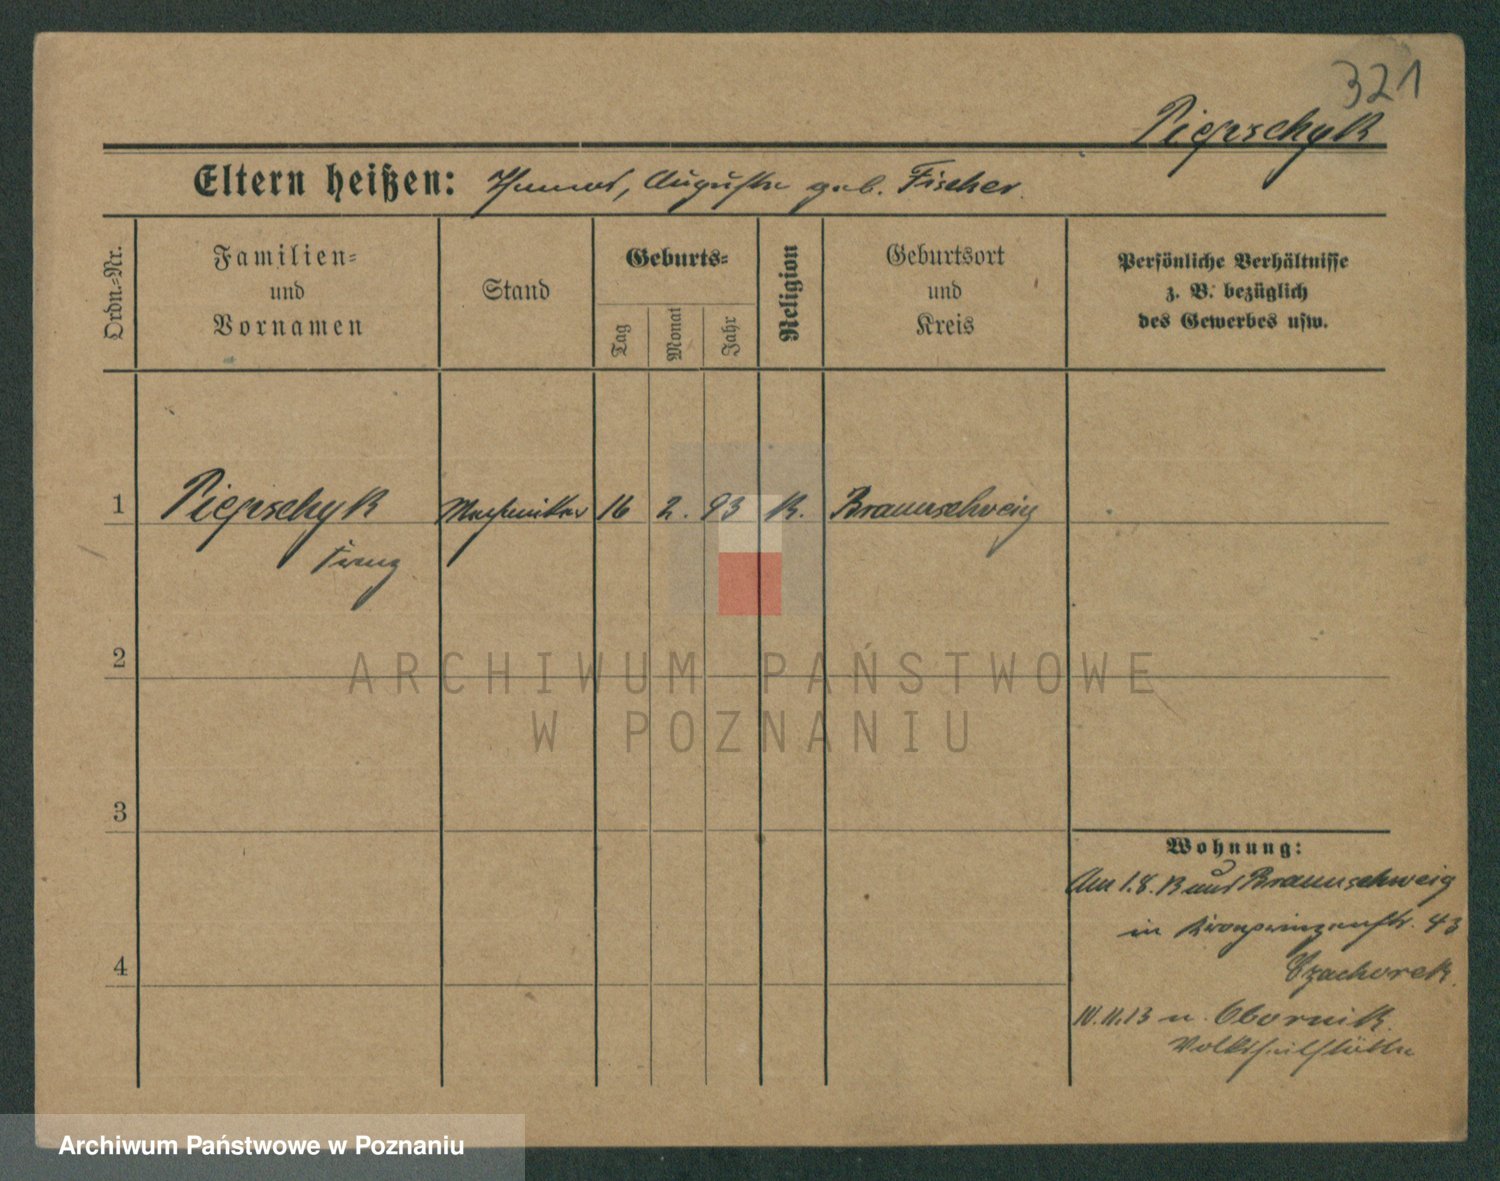 321
Piepschyk
Eltern heißen: Thomas, Auguste geb. Fischer.
Ordn.-Nr.
Familien-
und
Vornamen
Stand
Geburts-
Tag
Monat
Jahr
Religion
Geburtsort
und
Kreis
Persönliche Verhältnisse
z. B. bezüglich
des Gewerbes usw.
1
Piepschyk
Franz
Mechaniker
16
2.
93
K.
Braunschweig
2
ARCHIWUM PAŃSTWOWE
W POZNANIU
3
Wohnung:
Am 1.8.13 aus Braunschweig
in Kronprinzenstr. 43
Czachorek.
4
11.13 n. Obornik
Volksheilstätte
Archiwum Państwowe w Poznaniu